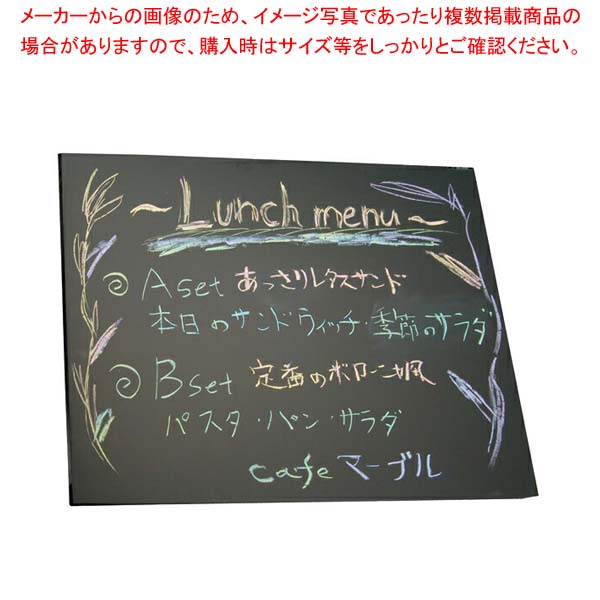 メーカーからの画像のため、イメージ写真であったり複数掲載商品の
場合がありますので、購入時はサイズ等をしっかりとご確認ください。
～Lunch menu～
A set あっさりレタスサンド
本日のサンドウィッチ・季節のサラダ
B set 定番のボローニャ風
パスタ・パン・サラダ
cafe マーブル